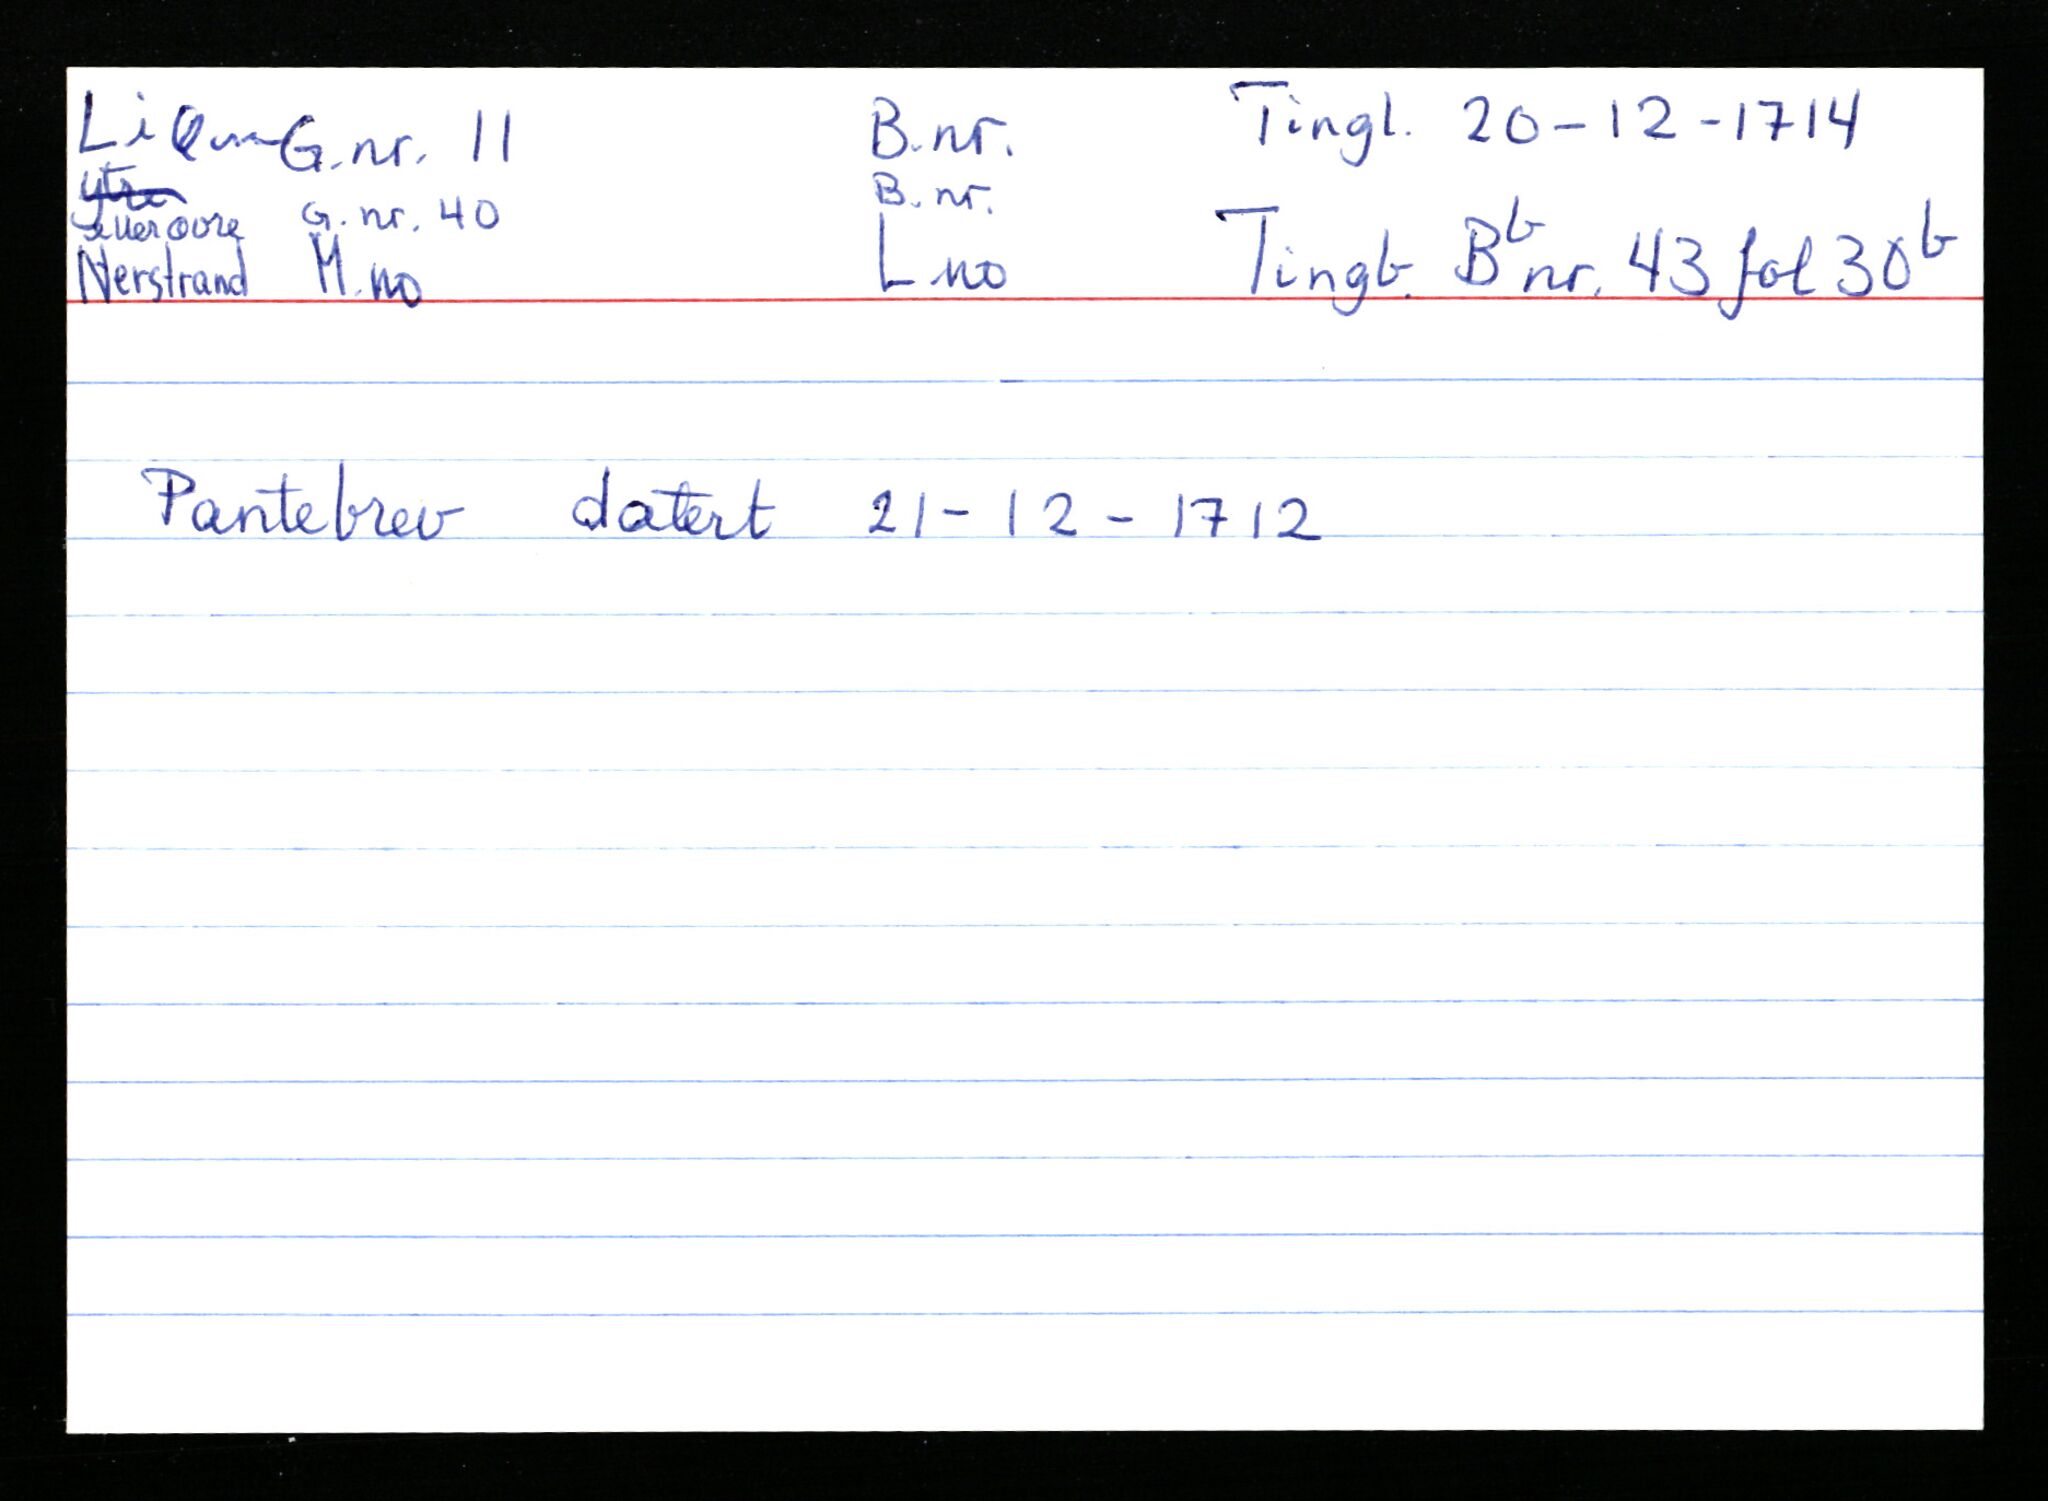 Li G.nr. 11 B.nr. Tingl. 20-12-1714
ytre
eller øvre G.nr. 40 B.nr.
Nerstrand M.no L.no Tingb. Bb nr. 43 fol 30b
Pantebrev datert 21-12-1712